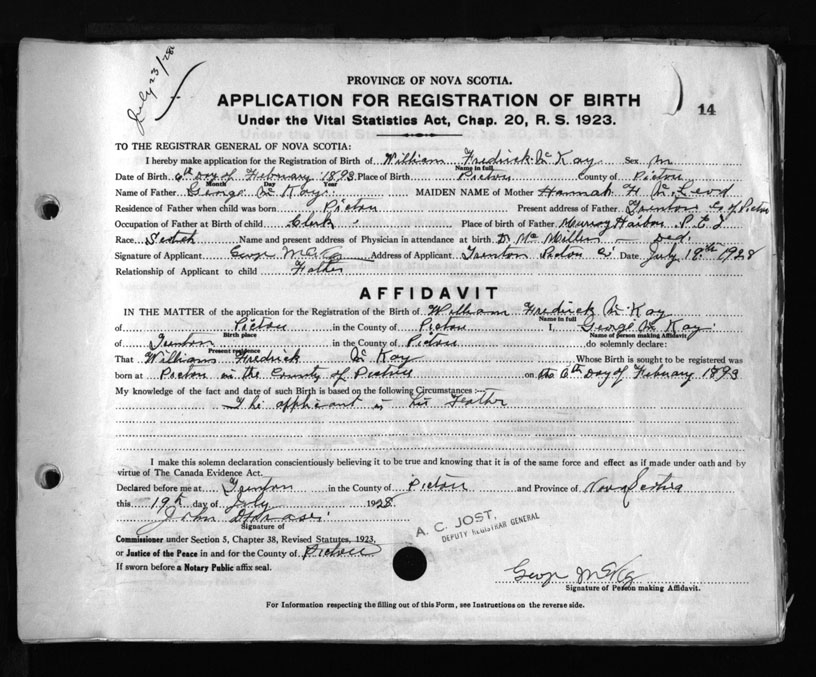 July 23/28
14
PROVINCE OF NOVA SCOTIA.
APPLICATION FOR REGISTRATION OF BIRTH
Under the Vital Statistics Act, Chap. 20, R. S. 1923.
TO THE REGISTRAR GENERAL OF NOVA SCOTIA:
I hereby make application for the Registration of Birth of William Fredrick Mc Kay Sex M
Name in full
Date of Birth 6th Day of February 1893 Place of Birth Pictou County of Pictou
Month Day Year
Name of Father George Mc Kay MAIDEN NAME of Mother Hannah H Mc Leod
Residence of Father when child was born Pictou Present address of Father Trenton Co of Pictou
Occupation of Father at Birth of child Clerk Place of birth of Father Murray Harbor P. E. I
Race Scotch Name and present address of Physician in attendance at birth Dr Mc Millen - ded.
Signature of Applicant George McKay Address of Applicant Trenton Pictou Co Date July 19th 1928
Relationship of Applicant to child Father
AFFIDAVIT
IN THE MATTER of the application for the Registration of the Birth of William Fredrick Mc Kay
Name in full
of Pictou in the County of Pictou I, George Mc Kay
Birth place Name of person making Affidavit
of Trenton in the County of Pictou do solemnly declare:
Present residence
That William Fredrick Mc Kay Whose Birth is sought to be registered was
born at Pictou in the County of Pictou on the 6th Day of February 1893
My knowledge of the fact and date of such Birth is based on the following Circumstances :—
The applicant is his Father
I make this solemn declaration conscientiously believing it to be true and knowing that it is of the same force and effect as if made under oath and by
virtue of The Canada Evidence Act.
Declared before me at Trenton in the County of Pictou and Province of Nova Scotia
this 19th day of July 1928
John
Signature of
Commissioner under Section 5, Chapter 38, Revised Statutes, 1923,
or Justice of the Peace in and for the County of Pictou
If sworn before a Notary Public affix seal.
A. C. JOST,
DEPUTY REGISTRAR GENERAL
George McKay
Signature of Person making Affidavit.
For Information respecting the filling out of this Form, see Instructions on the reverse side.